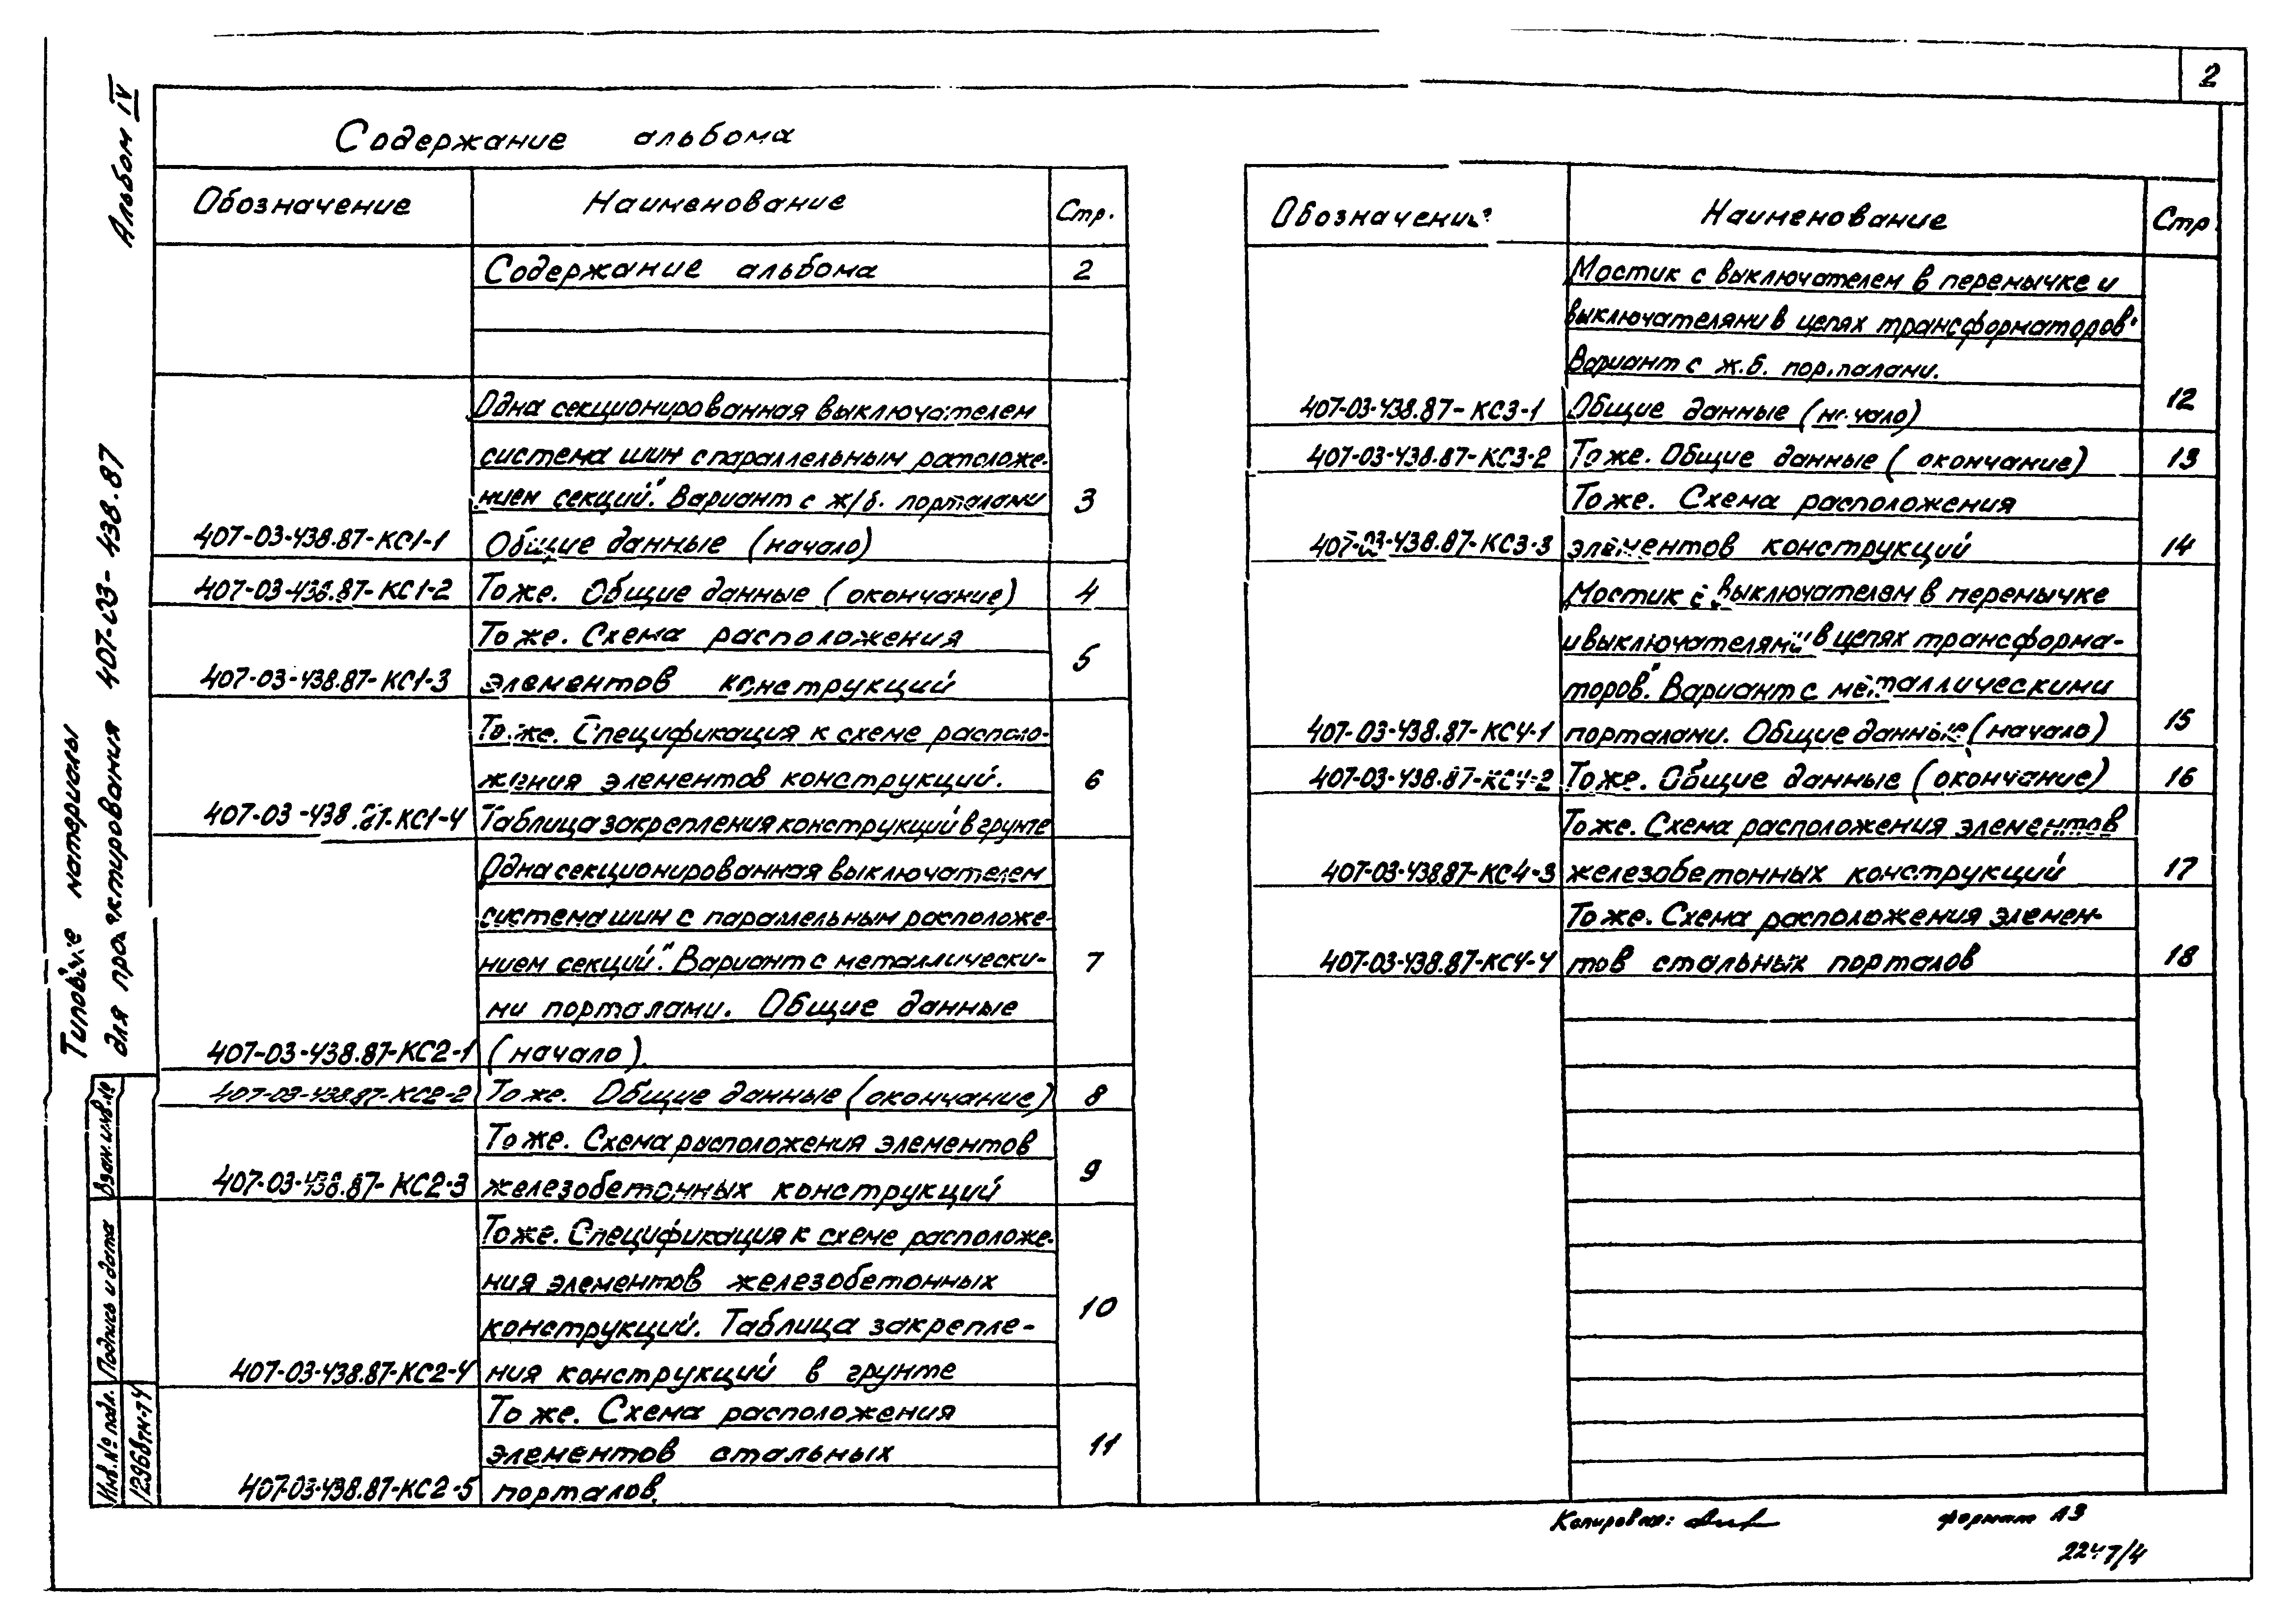 2
Альбом IV
Типовые материалы
для проектирования 407-03-438.87
Содержание альбома
Обозначение Наименование Стр.
Содержание альбома 2
Одна секционированная выключателем
система шин с параллельным расположе-
нием секций". Вариант с ж/б. порталами 3
407-03-438.87-КС1-1 Общие данные (начало)
407-03-438.87-КС1-2 То же. Общие данные (окончание) 4
То же. Схема расположения 5
407-03-438.87-КС1-3 элементов конструкций
То же. Спецификация к схеме располо-
жения элементов конструкций. 6
407-03-438.87-КС1-4 Таблица закрепления конструкций в грунте
Одна секционированная выключателем
система шин с параллельным расположе-
нием секций". Вариант с металлически- 7
ми порталами. Общие данные
407-03-438.87-КС2-1 (начало).
407-03-438.87-КС2-2 То же. Общие данные (окончание) 8
То же. Схема расположения элементов 9
407-03-438.87-КС2-3 железобетонных конструкций
То же. Спецификация к схеме расположе-
ния элементов железобетонных 10
конструкций. Таблица закрепле-
407-03-438.87-КС2-4 ния конструкций в грунте
То же. Схема расположения
элементов стальных 11
407-03-438.87-КС2-5 порталов.
Обозначение Наименование Стр.
Мостик с выключателем в перемычке и
выключателями в цепях трансформаторов"
Вариант с ж.б. порталами.
407-03-438.87-КС3-1 Общие данные (начало) 12
407-03-438.87-КС3-2 То же. Общие данные (окончание) 13
То же. Схема расположения
407-03-438.87-КС3-3 элементов конструкций 14
Мостик с выключателем в перемычке
и выключателями в цепях трансформа-
торов". Вариант с металлическими
407-03-438.87-КС4-1 порталами. Общие данные (начало) 15
407-03-438.87-КС4-2 То же. Общие данные (окончание) 16
То же. Схема расположения элементов
407-03-438.87-КС4-3 железобетонных конструкций 17
То же. Схема расположения элемен-
407-03-438.87-КС4-4 тов стальных порталов 18
Взам. инв. №
Подпись и дата
Инв. № подл.
12968тм-т4
Копировал: формат А3
2247/4